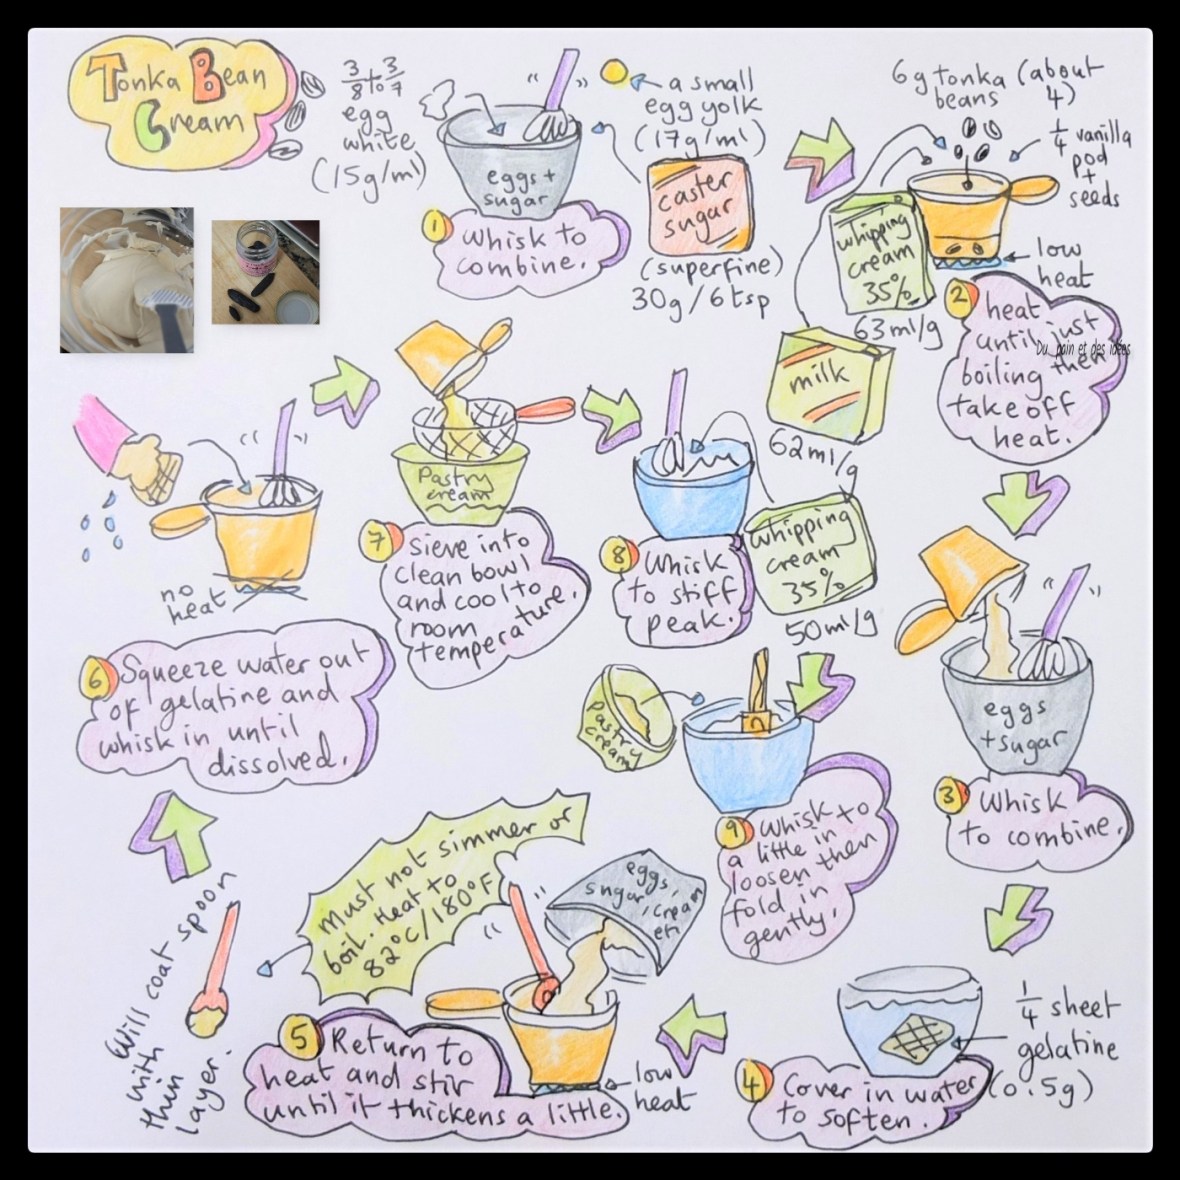 Tonka Bean
Cream
3/8 to 3/7
egg
white
(15g/ml)
eggs +
sugar
a small
egg yolk
(17g/ml)
caster
sugar
(superfine)
30g/6tsp
1 Whisk to
combine.
6g tonka (about
beans 4)
1/4 vanilla
pod
+
seeds
whipping
cream
35%
63ml/g
milk
62ml/g
low
heat
2 heat
until just
boiling then
take off
heat.
Du pain et des idées
eggs
+sugar
3 Whisk
to combine.
1/4 sheet
gelatine
(0.5g)
4 Cover in water
to soften.
eggs
sugar, cream
etc
low
heat
5 Return to
heat and stir
until it thickens a little.
Must not simmer or
boil. Heat to
82°C/180°F
Will coat spoon
with
thin
layer.
no
heat
6 Squeeze water out
of gelatine and
whisk in until
dissolved.
Pastry
cream
7 Sieve into
clean bowl
and cool to
room
temperature.
whipping
cream
35%
50ml/g
8 Whisk
to stiff
peak.
pastry
cream
9 Whisk to
a little in
loosen then
fold in
gently.